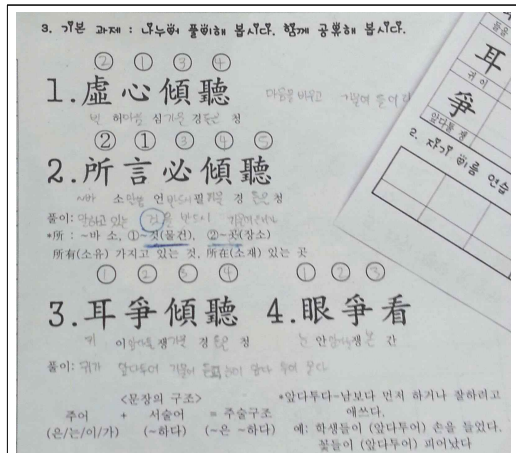 3. 기본 과제 : 나누어 풀이해 봅시다. 함께 공부해 봅시다.
② ① ③ ④
1. 虛心傾聽
마음을 비우고 기울여 들어라
빌 허 마음 심 기울 경 들을 청
② ① ③ ④ ⑤
2. 所言必傾聽
~바 소 말씀 언 반드시 필 기울 경 들을 청
풀이: 말하고 있는 것을 반드시
*所 : ~바 소, ①~것(물건), ②~곳(장소)
所有(소유) 가지고 있는 것, 所在(소재) 있는 곳
① ② ③ ④ ① ② ③
3. 耳爭傾聽 4. 眼爭看
귀 이 다툴 쟁 기울 경 들을 청 눈 안 쟁 간
풀이: 귀가 앞다투어
<문장의 구조>
주어 + 서술어 = 주술구조
(은/는/이/가) (~하다) (~은 ~하다)
*앞다투다~남보다 먼저 하거나 잘하려고
애쓰다.
예: 학생들이 (앞다투어) 손을 들었다.
꽃들이 (앞다투어) 피어났다
耳
귀 이
爭
앞다툴 쟁
2. 자기 이름 연습